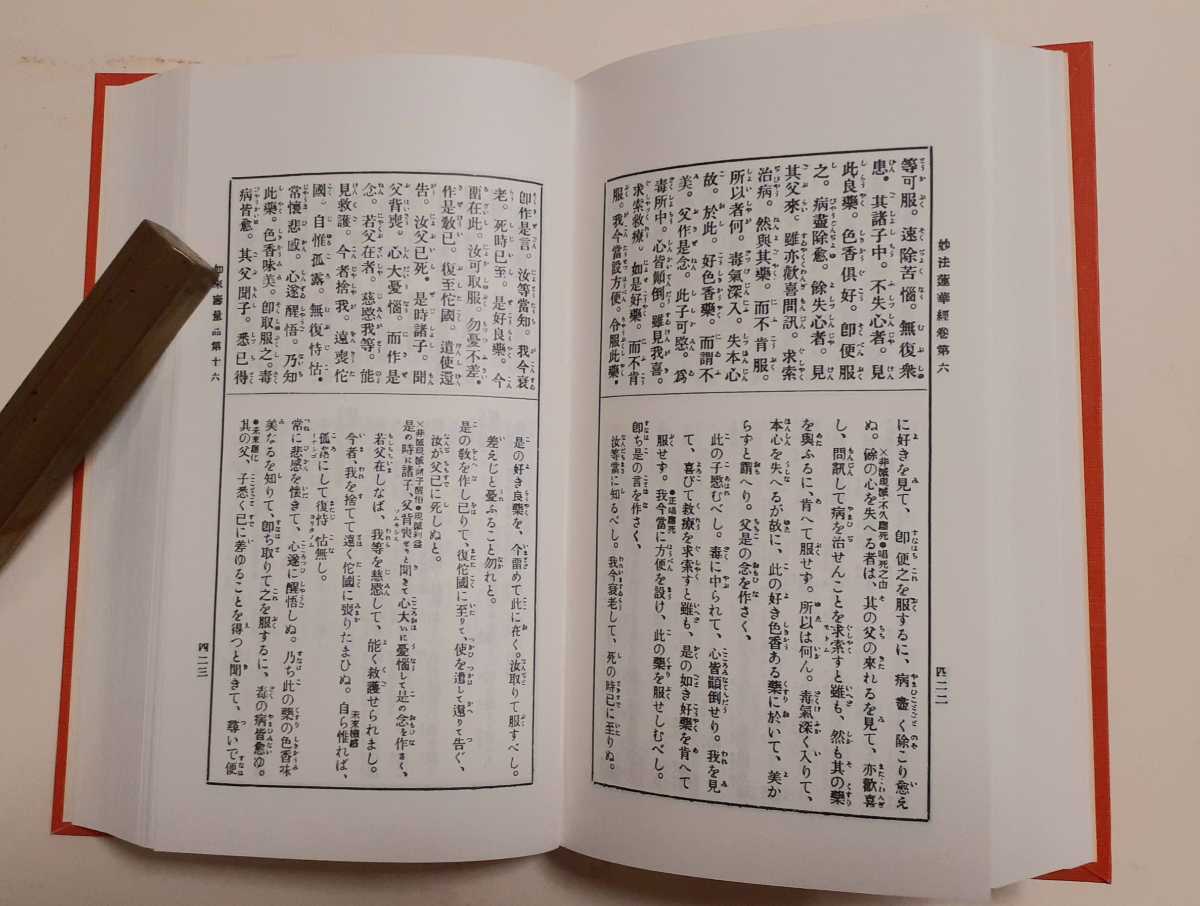 妙法蓮華經卷第六
等可服。速除苦惱。無復衆
患。其諸子中。不失心者。見
此良藥。色香俱好。卽便服
之。病盡除愈。餘失心者。見
其父來。雖亦歡喜問訊。求索
治病。然與其藥。而不肯服。
所以者何。毒氣深入。失本心
故。於此。好色香藥。而謂不
美。父作是念。此子可愍。爲
毒所中。心皆顚倒。雖見我喜。
求索救療。如是好藥。而不肯
服。我今當設方便。令服此藥。
に好きを見て、卽便之を服するに、病盡く除こり愈え
ぬ。餘の心を失へる者は、其の父の來れるを見て、亦歡喜
し、問訊して病を治せんことを求索すと雖も、然も其の藥
を與ふるに、肯へて服せず。所以は何ん。毒氣深く入りて、
本心を失へるが故に、此の好き色香ある藥に於いて、美か
らずと謂へり。父是の念を作さく、
此の子愍むべし。毒に中られて、心皆顚倒せり。我を見
て、喜びて救療を求索すと雖も、是の如き好藥を肯へて
服せず。我今當に方便を設け、此の藥を服せしむべし。
卽ち是の言を作さく、
汝等當に知るべし。我今衰老して、死の時已に至りぬ。
四二二
卽作是言。汝等當知。我今衰
老。死時已至。是好良藥。今
留在此。汝可取服。勿憂不差。
作是敎已。復至佗國。遣使還
告。汝父已死。是時諸子。聞
父背喪。心大憂惱。而作是
念。若父在者。慈愍我等。能
見救護。今者捨我。遠喪佗
國。自惟孤露。無復恃怙。
常懷悲感。心遂醒悟。乃知
此藥。色香味美。卽取服之。毒
病皆愈。其父聞子。悉已得
是の好き良藥を、今留めて此に在く。汝取りて服すべし。
差えじと憂ふること勿れと。
是の敎を作し已りて、復佗國に至りて、使を遣して還りて告ぐ、
汝が父已に死しぬと。
是の時に諸子、父背喪せりと聞きて心大いに憂惱して是の念を作さく、
若父在しなば、我等を慈愍して、能く救護せられまし。
今者我を捨てて遠く佗國に喪りたまひぬ。自ら惟れば、
孤露にして復恃怙無し。
常に悲感を懷きて、心遂に醒悟しぬ。乃ち此の藥の色香味
美なるを知りて、卽ち取りて之を服するに、毒の病皆愈ゆ。
其の父、子悉く已に差ゆることを得つと聞きて、尋いで便
來壽量品第十六
四二三